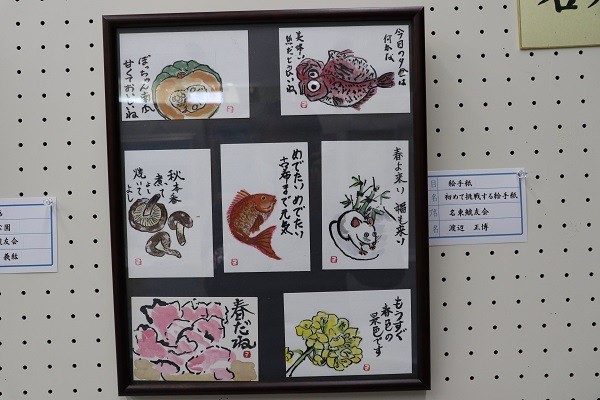 ぼっちゃん南瓜
甘くておいしいね
今日の夕食は
何かな
美味しい
魚だといいね
秋本番
煮てよし
焼いてよし
めでたいめでたい
古希まで元気
春よ来い 福も来い
春だね
もうすぐ
春色の
景色です
絵手紙
初めて挑戦する絵手紙
名東鯱友会
渡辺 正博
公園
友会
義紘